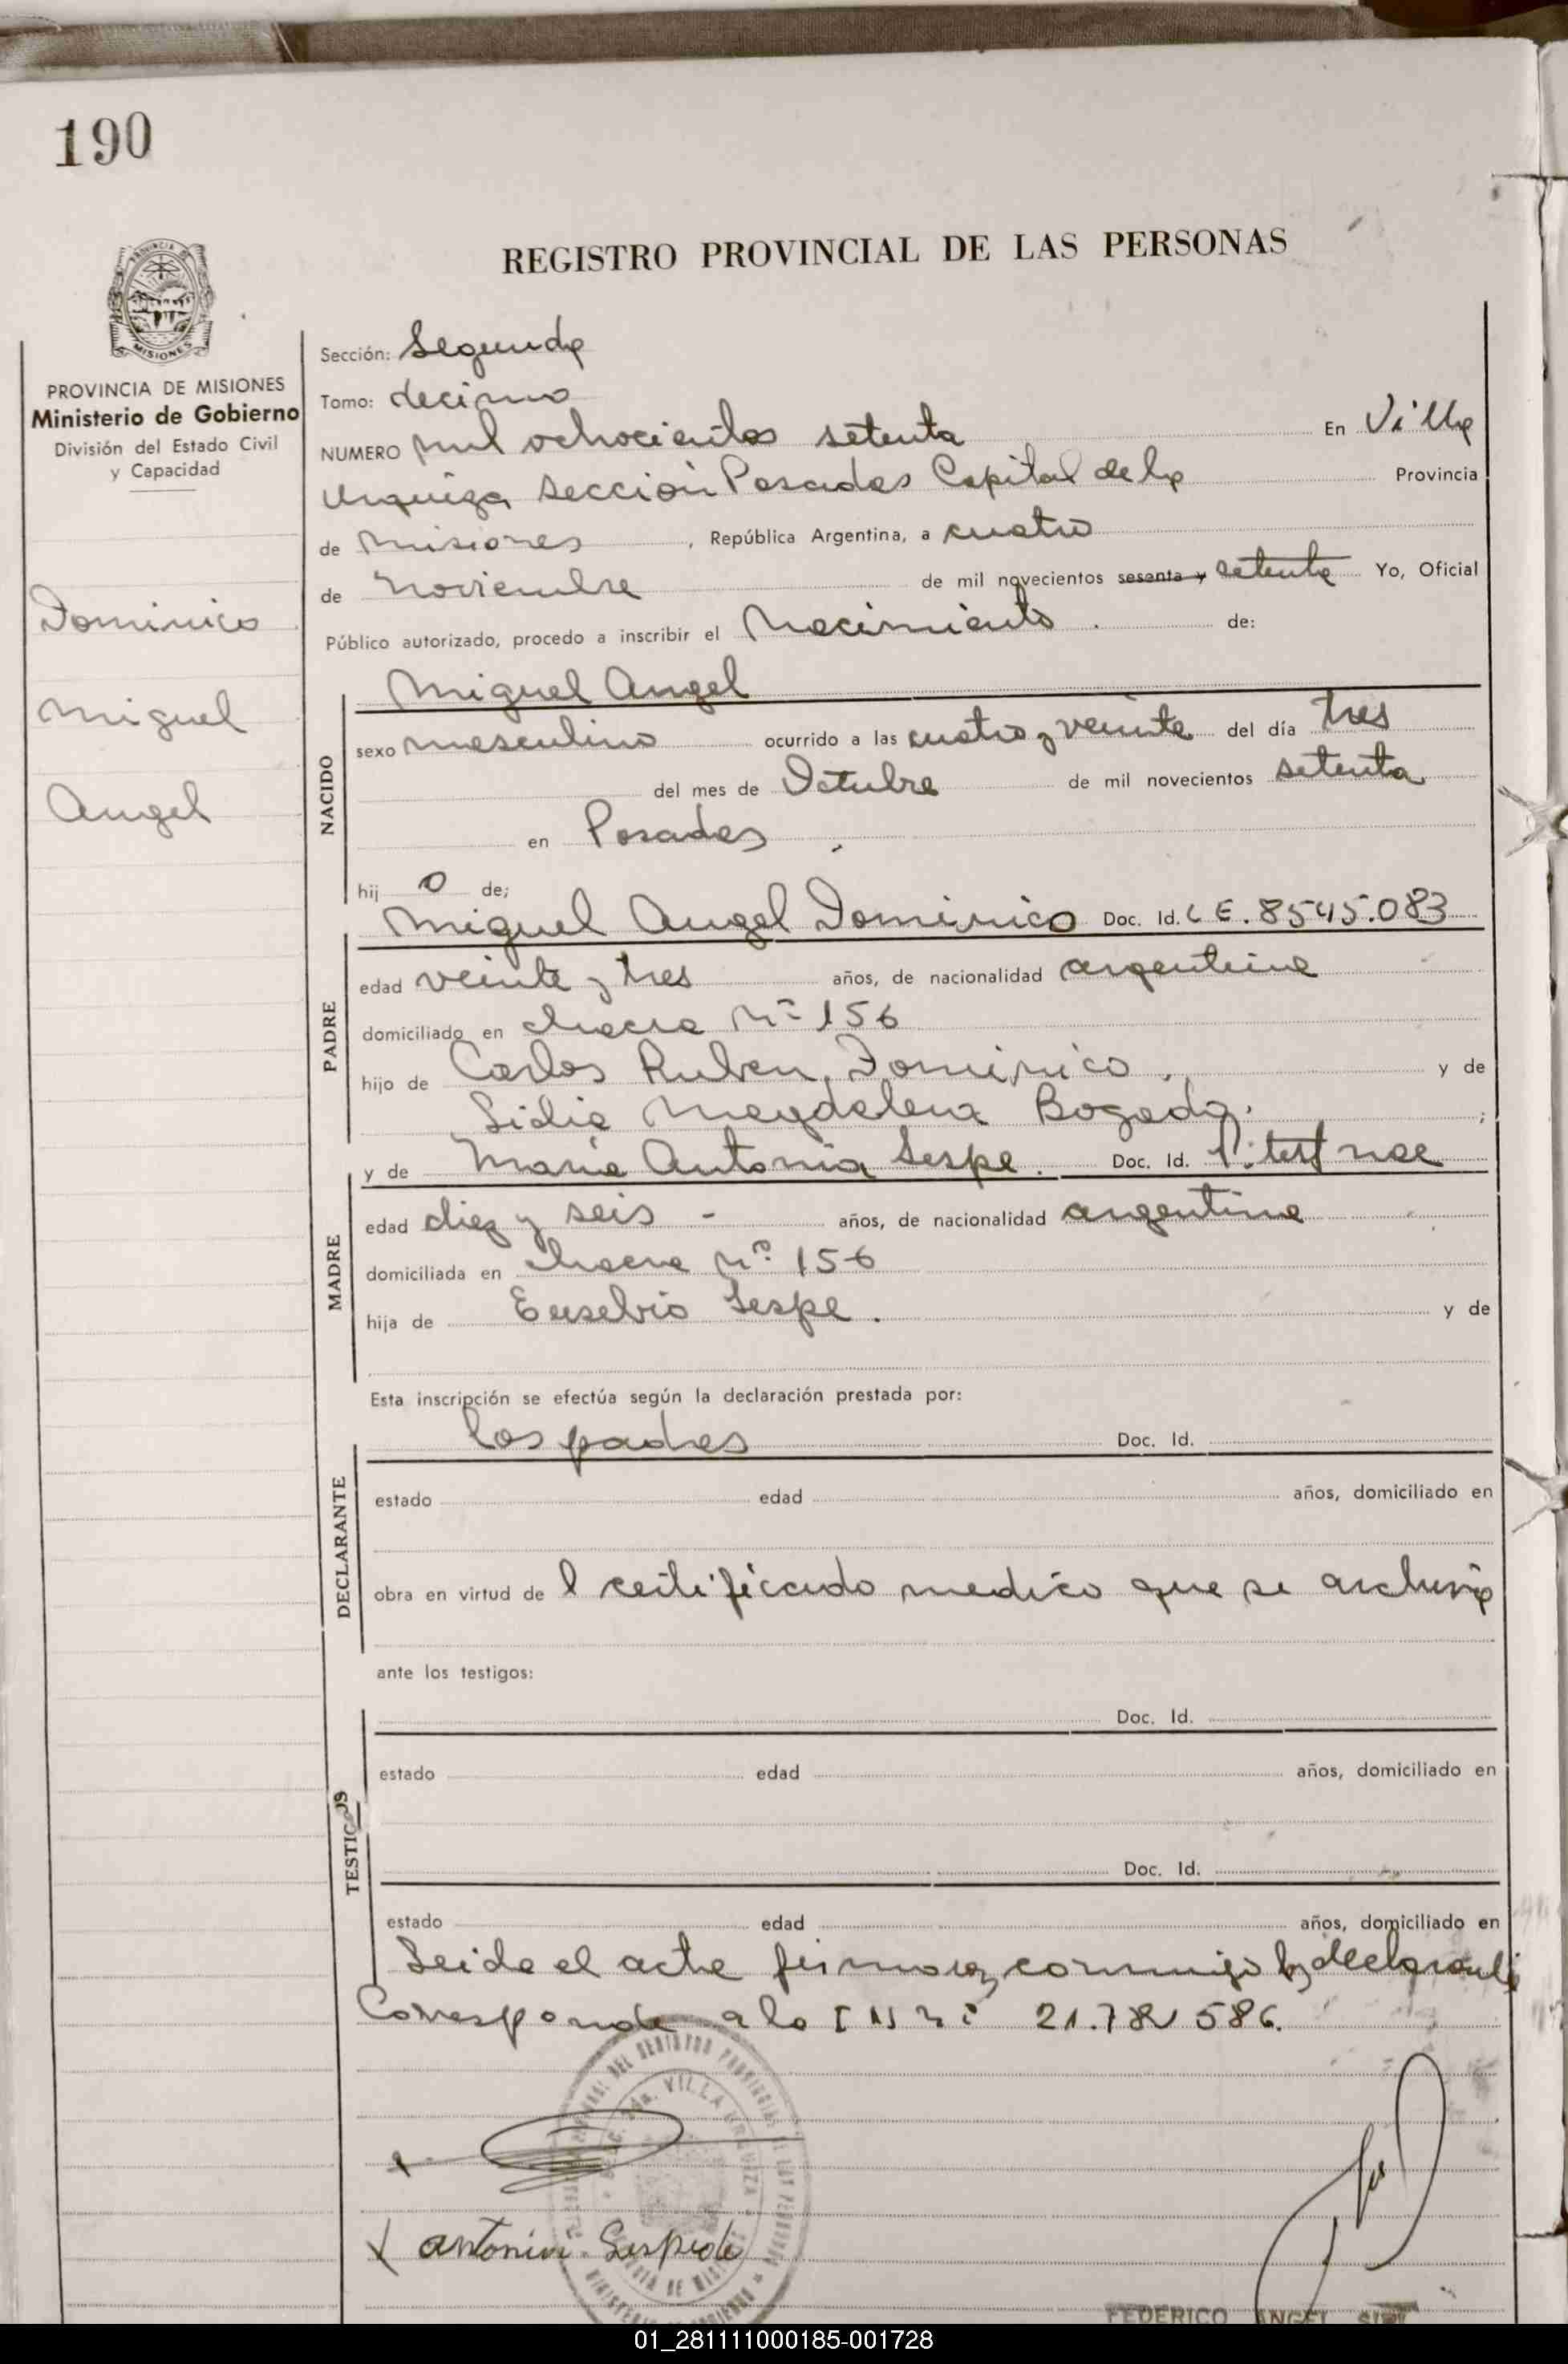 190
REGISTRO PROVINCIAL DE LAS PERSONAS
MISIONES
PROVINCIA DE MISIONES
Ministerio de Gobierno
División del Estado Civil
y Capacidad
Dominico
Miguel
Angel
Sección: Segunda
Tomo: decimo
NUMERO mil ochocientos setenta En Villa
Urquiza Sección Posadas Capital de la Provincia
de Misiones, República Argentina, a cuatro
de Noviembre de mil novecientos sesenta y setenta Yo, Oficial
Público autorizado, procedo a inscribir el Nacimiento de:
NACIDO
Miguel Angel
sexo masculino ocurrido a las cuatro y veinte del día tres
del mes de Octubre de mil novecientos setenta
en Posadas
hij o de;
PADRE
Miguel Angel Dominico Doc. Id. L E. 8545.083
edad veinte y tres años, de nacionalidad argentina
domiciliado en chacra Nº 156
hijo de Carlos Ruben Dominico y de
Lidia Magdalena Bogado.
y de Maria Antonia Sespe. Doc. Id. P. test nac
MADRE
edad diez y seis - años, de nacionalidad argentina
domiciliada en chacra nº 156
hija de Eusebio Sespe. y de
Esta inscripción se efectúa según la declaración prestada por:
DECLARANTE
los padres Doc. Id.
estado edad años, domiciliado en
obra en virtud de l certificado medico que se archiva
ante los testigos:
TESTIGOS
Doc. Id.
estado edad años, domiciliado en
Doc. Id.
estado edad años, domiciliado en
Leida el acta firman conmigo los declarantes
Corresponde a la I N nº 21.781 586.
VILLA URQUIZA
Antonia Sespede
FEDERICO ANGEL
01_281111000185-001728